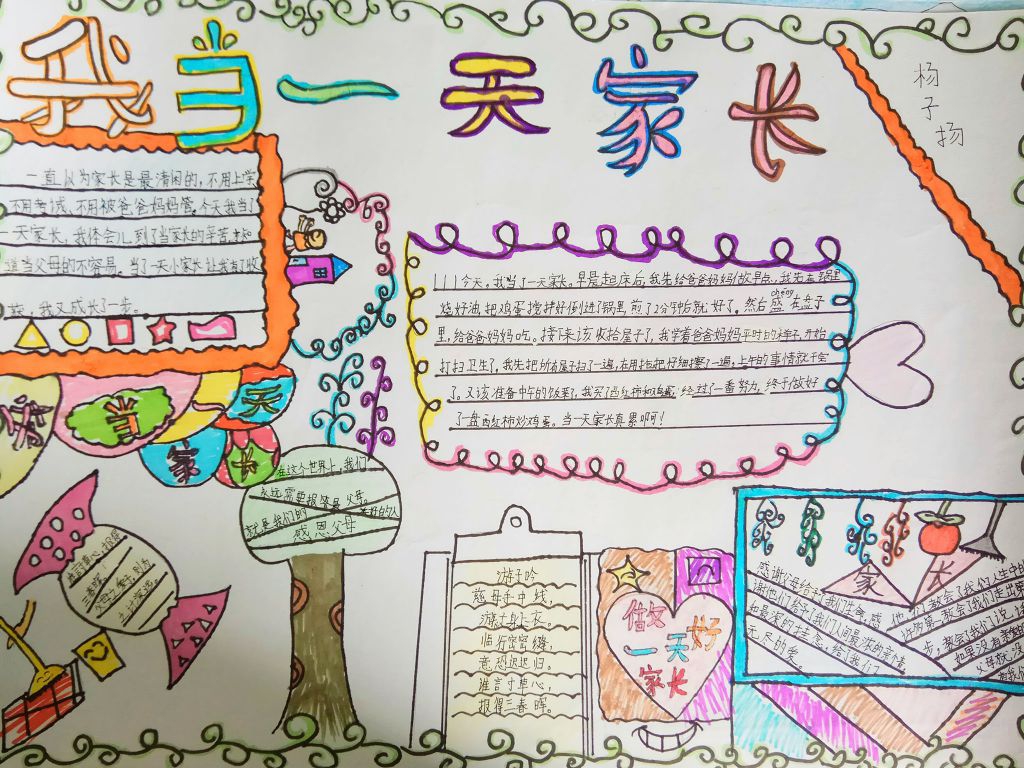 我当一天家长
杨子扬
一直以为家长是最清闲的,不用上学
不用考试、不用被爸爸妈妈管。今天我当了
一天家长,我体会儿到了当家长的辛苦,
道当父母的不容易。当了一天小家长让我有了收
获,我又成长了一步。
今天。我当了一天家长。早晨起床后,我先给爸爸妈妈做早点,我先在锅里
烧好油,把鸡蛋搅拌好倒进了锅里,煎了2分钟后就好了。然后盛在盘子
chéng
里,给爸爸妈妈吃。接下来该收拾屋子了,我学着爸爸妈妈平时的样子,开始
打扫卫生了,我先把所有屋子扫了一遍,在用拖把仔细擦了一遍,上午的事情就干完
了。又该准备中午的饭菜,我买了西红柿和鸡蛋,经过了一番努力,终于做好
了一盘西红柿炒鸡蛋。当一天家长真累啊!
当
天
家
长
在这个世界上,我们
永远需要报答最
美好的人
就是我们的
父母。
感恩父母
游子吟
慈母手中线,
游子身上衣。
临行密密缝,
意恐迟迟归。
谁言寸草心,
报得三春晖。
做好
一天
家长
家长
感谢父母给予我们生命,感
谢他们给予我们人间最浓的亲情
和最深的挂念,给了我们了
无尽的爱。